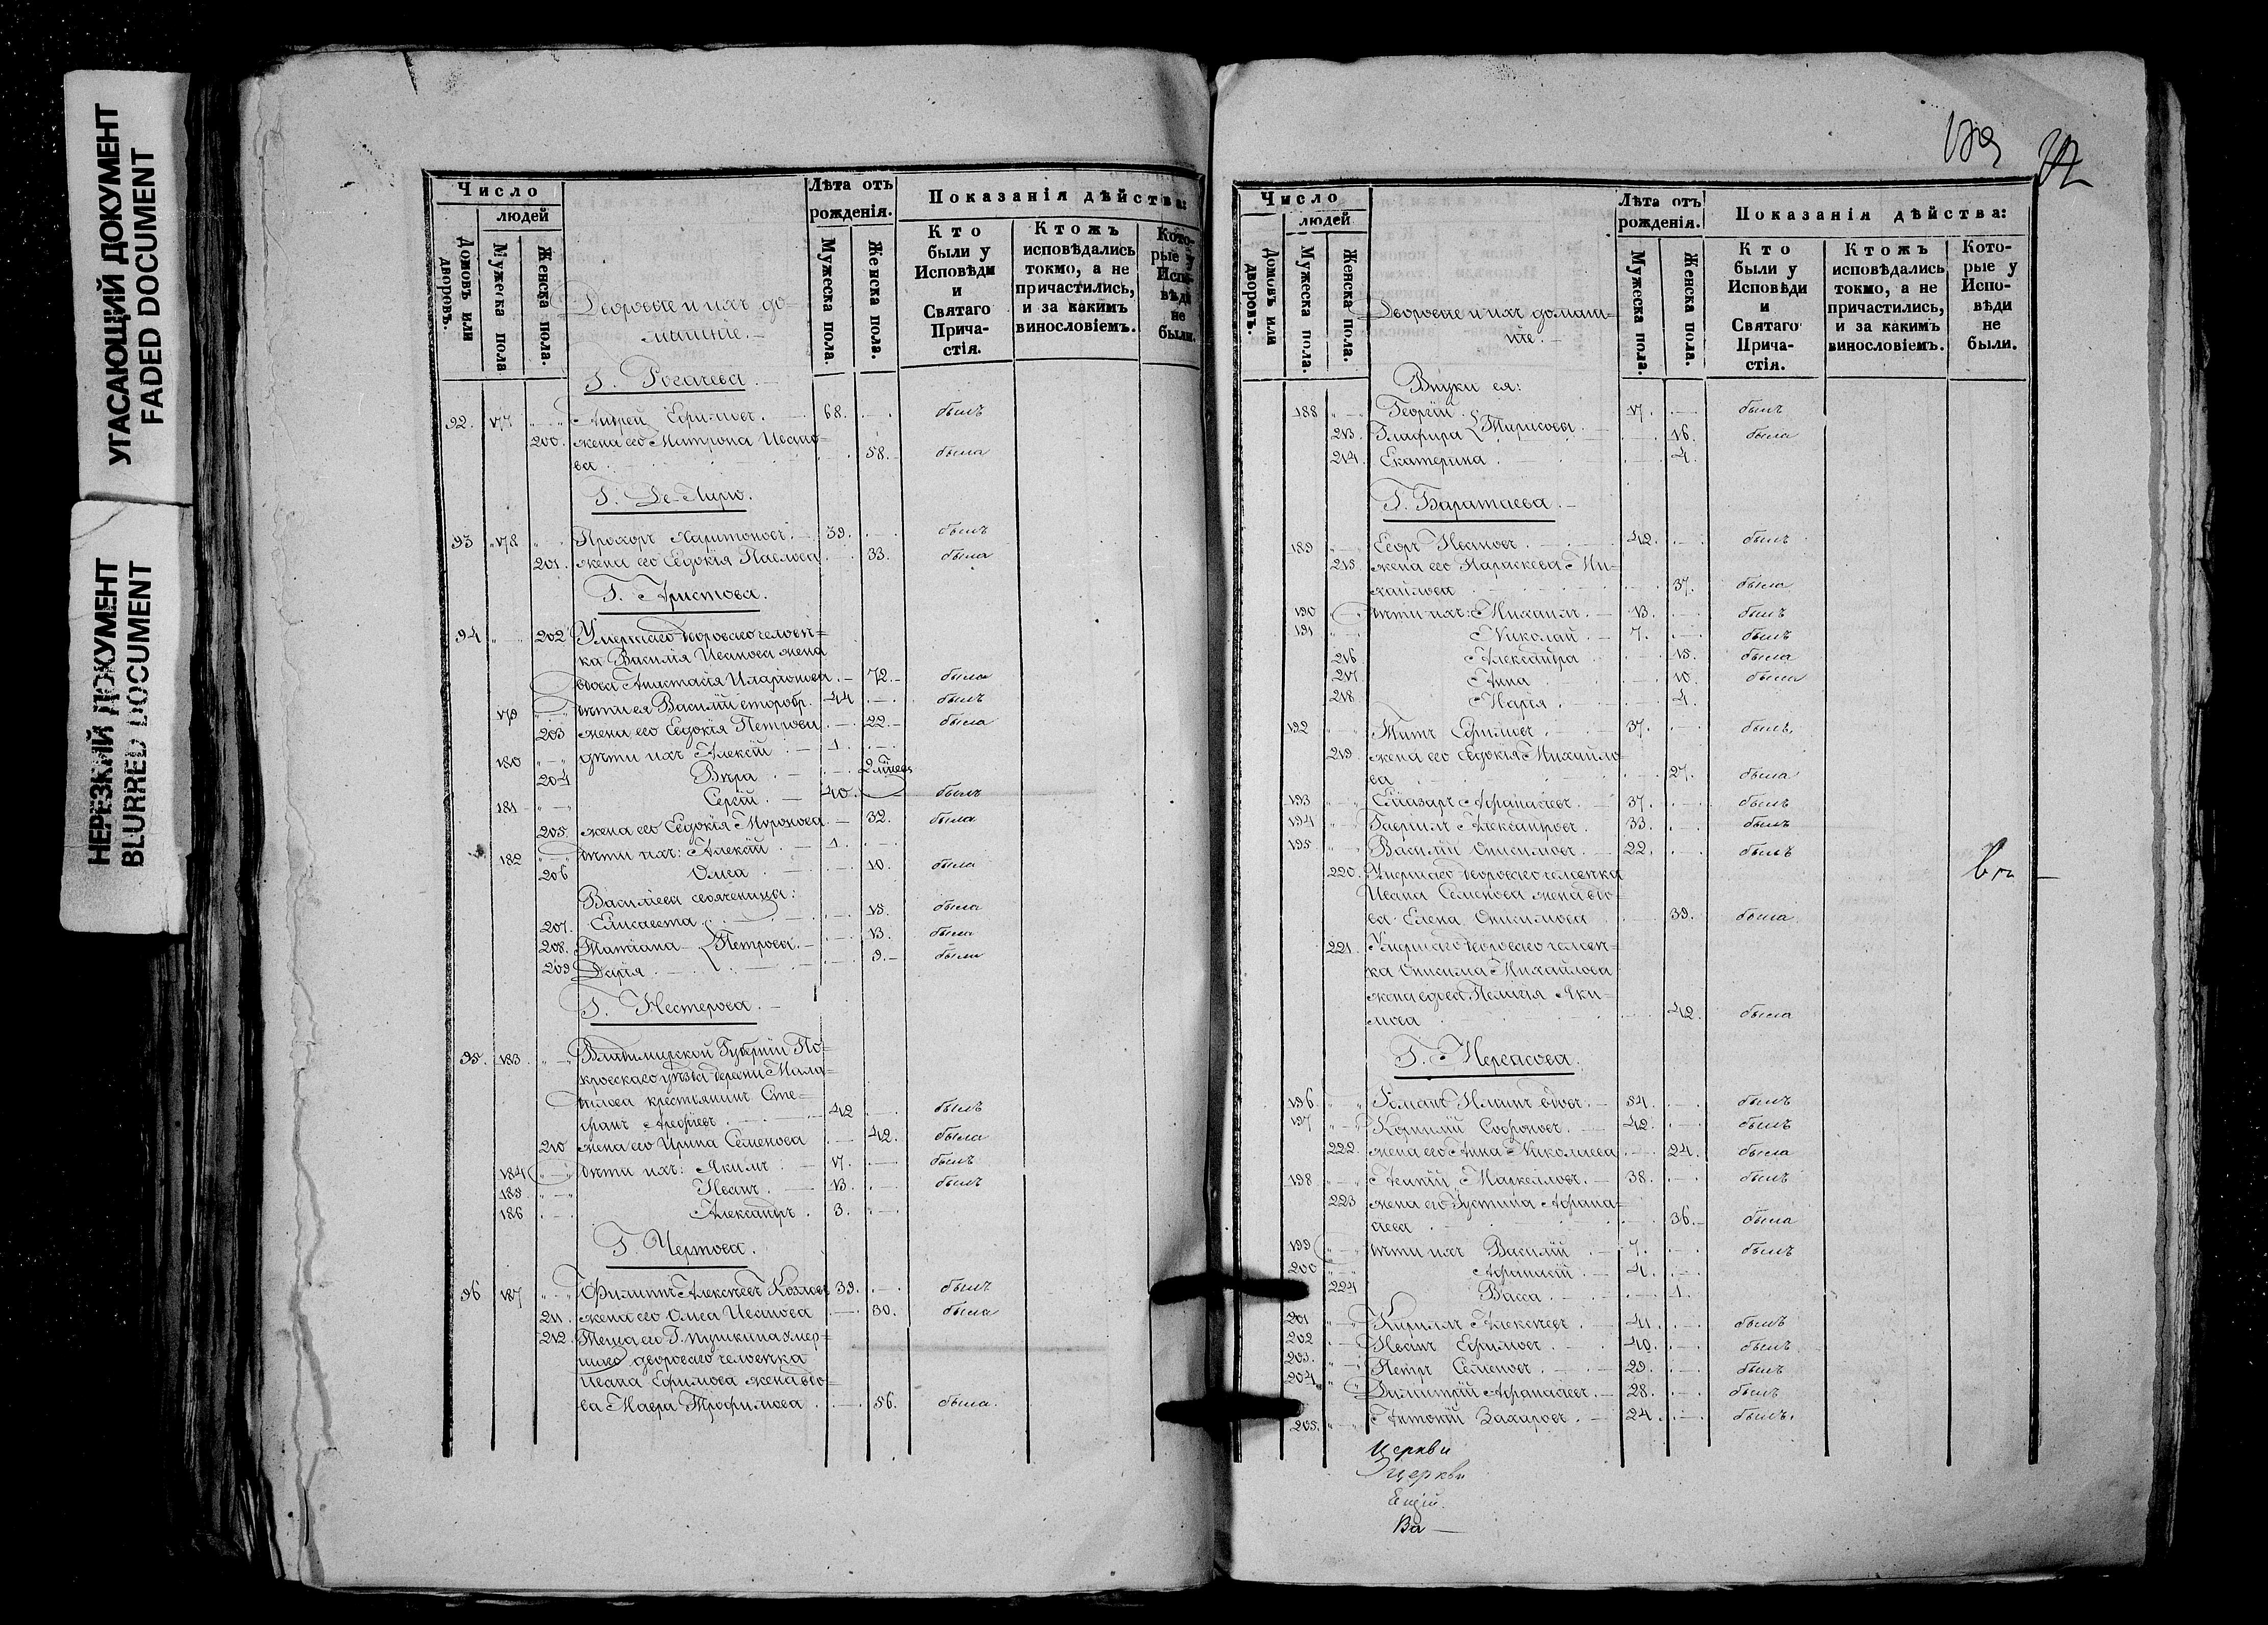 УГАСАЮЩИЙ ДОКУМЕНТ
FADED DOCUMENT
НЕРЕЗКИЙ ДОКУМЕНТ
BLURRED DOCUMENT
Число
людей
Домовъ или дворовъ.
Мужеска пола
Женска пола.
Лѣта отъ рожденія.
Мужеска пола.
Женска пола.
Показанія дѣйства:
Кто были у Исповѣди и Святаго Прича-стія.
Ктожъ исповѣдались токмо, а не причастились, и за какимъ винословіемъ.
Кото-рые у Испо-вѣди не были.
Дворовые и ихъ до=
машніе.
Г. Рогачева
92. 177 Андрей Ефимовъ. 68. былъ
200. жена его Матрона Ивано=
ва 58. была
Г. Де-Лирю.
93 178 Прохоръ Харитоновъ. 39. былъ
201. жена его Евдокія Павлова 33. была
Г. Аристова.
94 202 Умершаго двороваго человѣ=
ка Василія Иванова жена
вдова Анастасія Иларіонова 72. была
179 дѣти ея Василій второбр. 44 былъ
203 жена его Евдокія Петрова 22. была
180 дѣти ихъ Алексій 1.
204 Вѣра
181 Сергій. 40. былъ
205. жена его Евдокія Миронова 32. была
182 дѣти ихъ: Алексій 1.
206 Олга 10. была
Василіева своячепица:
207. Елисавета 15. была
208. Татіана Петровы. 13. была
209 Дарія 9. была
Г. Нестерова.
95. 183 Владимирской Губерніи По=
кровскаго уѣзда деревни Мала=
хова крестьянинъ Сте=
фанъ Арефіевъ 42 былъ
210 жена его Ирина Семенова 42. была
184 дѣти ихъ: Якимъ 17. былъ
185 Иванъ. 13. былъ
186 Александръ. 3.
Г. Чертова.
96 187 Филиппъ Алексѣевъ Козловъ 39. былъ
211. жена его Олга Иванова 30. была
212. Теща его Г. Пушкина умер=
шаго двороваго человѣка
Ивана Ефимова жена вдо=
ва Мавра Трофимова 56. была.
189
Число
людей
Домовъ или дворовъ.
Мужеска пола.
Женска пола.
Лѣта отъ рожденія.
Мужеска пола.
Женска пола.
Показанія дѣйства:
Кто были у Исповѣди и Святаго Прича-стія.
Ктожъ исповѣдались токмо, а не причастились, и за какимъ винословіемъ.
Кото-рые у Испо-вѣди не были.
Дворовые и ихъ домаш=
ніе.
Внуки ея:
188 Георгій 17. былъ
213. Глафира Тирисова 16. была
214. Екатерина 4.
Г. Баратаева.
189 Егоръ Ивановъ 42. былъ
215. жена его Параскева Ми=
хайлова 37. была
190 дѣти ихъ: Михаилъ 13. былъ
191 Николай 7. былъ
216 Александра 15. была
217. Анна 10. была
218. Марія 4.
192 Титъ Ефимовъ 37. былъ.
219. жена его Евдокія Михайло
ва 27. была
193 Елиазаръ Афанасіевъ. 37. былъ
194 Гавріилъ Александровъ. 33. былъ
195 Василій Онисимовъ 22. былъ
220. Умершаго двороваго человѣка
Ивана Семенова жена вдо=
ва Елена Онисимова 39. была
221. Умершаго двороваго человѣ=
ка Онисима Михайлова
жена вдова Пелагія Яки=
мова 42. была
Г. Мергасова.
196. Романъ Ильинъ вдовъ. 54. былъ
197 Корнилій Софроновъ. 42. былъ
222. жена его Анна Николаева 24. была
198 Маркелловъ. 38. былъ
223 жена его Густина Афана=
сіева 36. была
199 дѣти ихъ Василій 7. былъ
200 Афанасій 4.
224 Васса 1.
201 Кириллъ Алексѣевъ 41. былъ
202 Иванъ Ефимовъ 40. былъ
203. Петръ Семеновъ 29. былъ
204. Димитрій Афанасіевъ. 28. былъ
205. Антоній Захаровъ. 24. былъ.
Церкви
церкви
Ва —